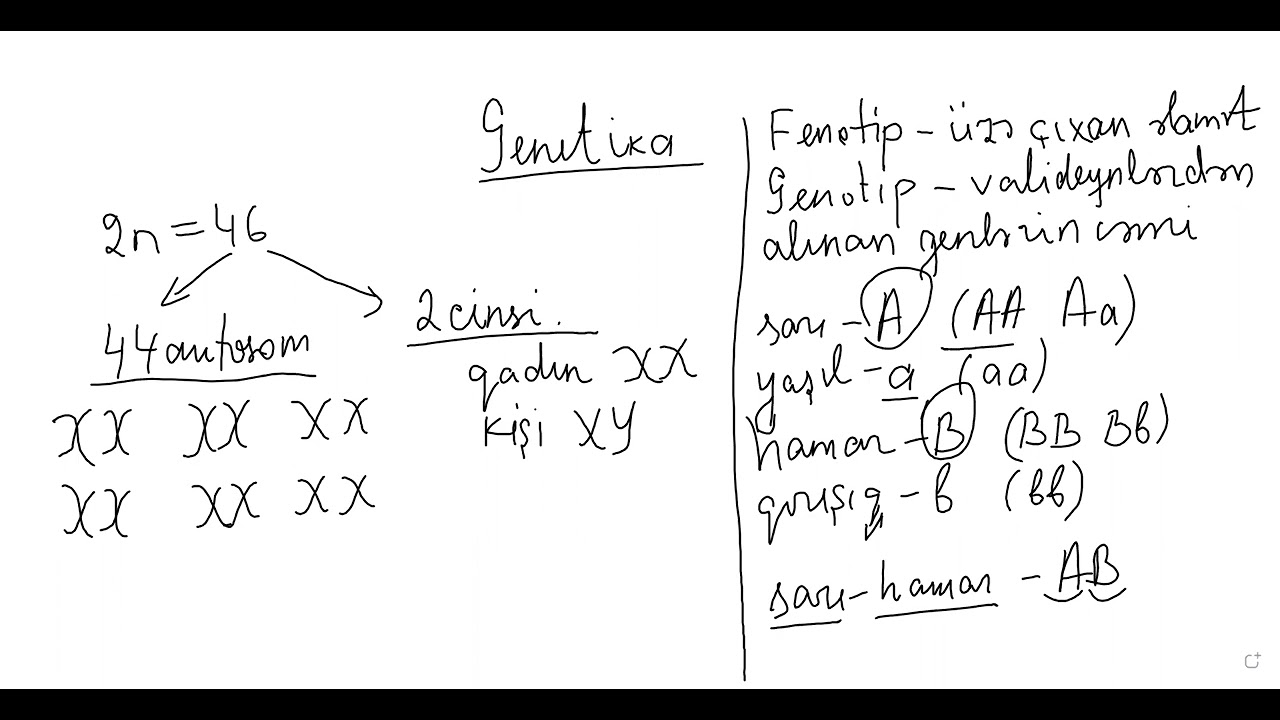 Genetika
2n = 46
44 autosom
XX XX XX
XX XX XX
2 cinsi.
qadın XX
kişi XY
Fenotip - üzə çıxan əlamət
Genotip - valideynlərdən
alınan genlərin cəmi
sarı - A (AA Aa)
yaşıl - a (aa)
hamar - B (BB Bb)
qırışıq - b (bb)
sarı - hamar - AB